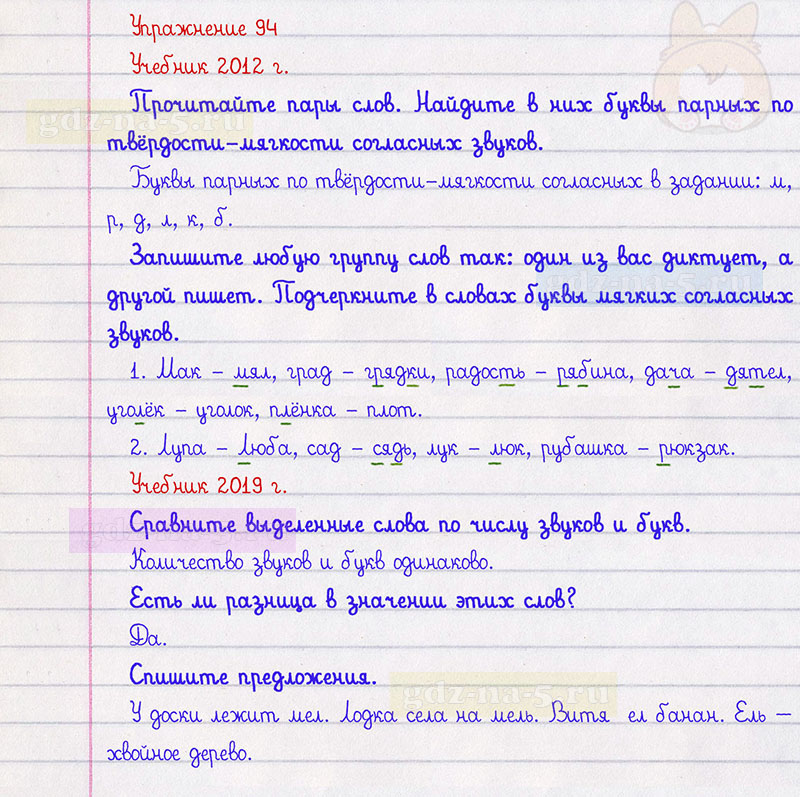 Упражнение 94
Учебник 2012 г.
Прочитайте пары слов. Найдите в них буквы парных по
gdz-na-5.ru
твёрдости-мягкости согласных звуков.
Буквы парных по твёрдости-мягкости согласных в задании: м,
р, д, л, к, б.
Запишите любую группу слов так: один из вас диктует, а
gdz-na-5.ru
другой пишет. Подчеркните в словах буквы мягких согласных
звуков.
1. Мак – мял, град – грядки, радость – рябина, дача – дятел,
уголёк – уголок, плёнка – плот.
2. Лупа – Люба, сад – сядь, лук – люк, рубашка – рюкзак.
Учебник 2019 г.
Сравните выделенные слова по числу звуков и букв.
gdz-na-5.ru
Количество звуков и букв одинаково.
Есть ли разница в значении этих слов?
Да.
Спишите предложения.
gdz-na-5.ru
У доски лежит мел. Лодка села на мель. Витя ел банан. Ель –
хвойное дерево.